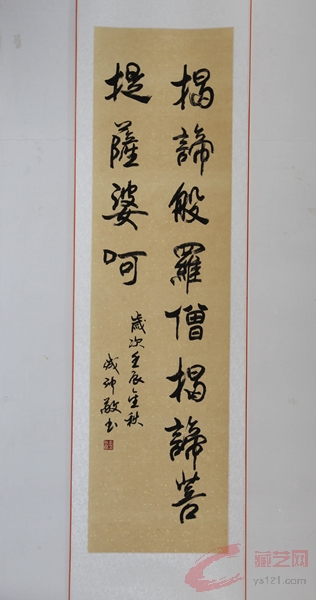 揭諦般羅僧揭諦菩
提薩婆呵
歲次壬辰金秋
成沖敬书
藏艺网
ys121.com